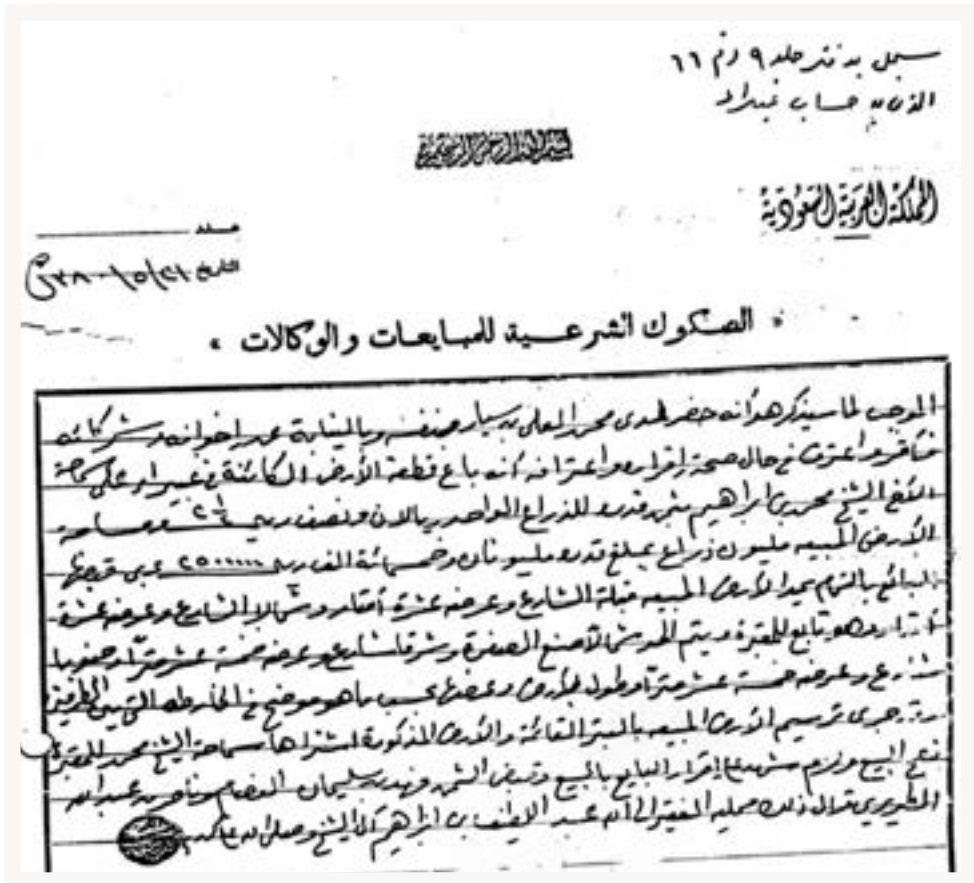 سجل بدفتر جلد ٩ رقم ١١
بسم الله الرحمن الرحيم
المملكة العربية السعودية
عدد
التاريخ ٢١/٥/
« الصكوك الشرعية للمبايعات والوكالات »
الموجب لما سيذكر هو أنه حضر لدي محمد المعلى بن سيار عن نفسه وبالنيابة عن اخوانه وشركائه
فأقر واعترف في حال صحة إقراره واعترافه أنه باع قطعة الأرض الكائنة في غبيراء على سماحة
الشيخ محمد بن ابراهيم بثمن قدره للذراع الواحد ريالان ونصف ريال ٢½ ومساحة
الأرض المبيعه مليون ذراع بمبلغ قدره مليونان وخمسمائة الف ريال ٢٥٠٠٠٠٠ عربي قبضها
البائع بالتمام يحد الأرض المبيعه قبلة الشارع وعرضه عشرة أمتار وشمالا الشارع وعرضه عشرة
أمتار وهو تابع للمقبرة ويتم الحوش شمالا وشرقا شارع وعرضه خمسة عشر متراً وجنوبا
شارع وعرضه خمسة عشر متراً وطول الأرض وعرضها بحسب ما هو موضح في الخارطة التي بيد الطرفين
وقد جرى ترسيم الأرض المبيعه بالبتر القائمة والأرض المذكورة اشتراها سماحة الشيخ محمد للمقبرة
فصح البيع ولزم شهد على إقرار البايع بالبيع وقبض الثمن فهد بن سليمان وناصر بن عبدالله
قال ذلك ممليه الفقير الى الله عبد اللطيف بن ابراهيم آل الشيخ وصلى الله على محمد